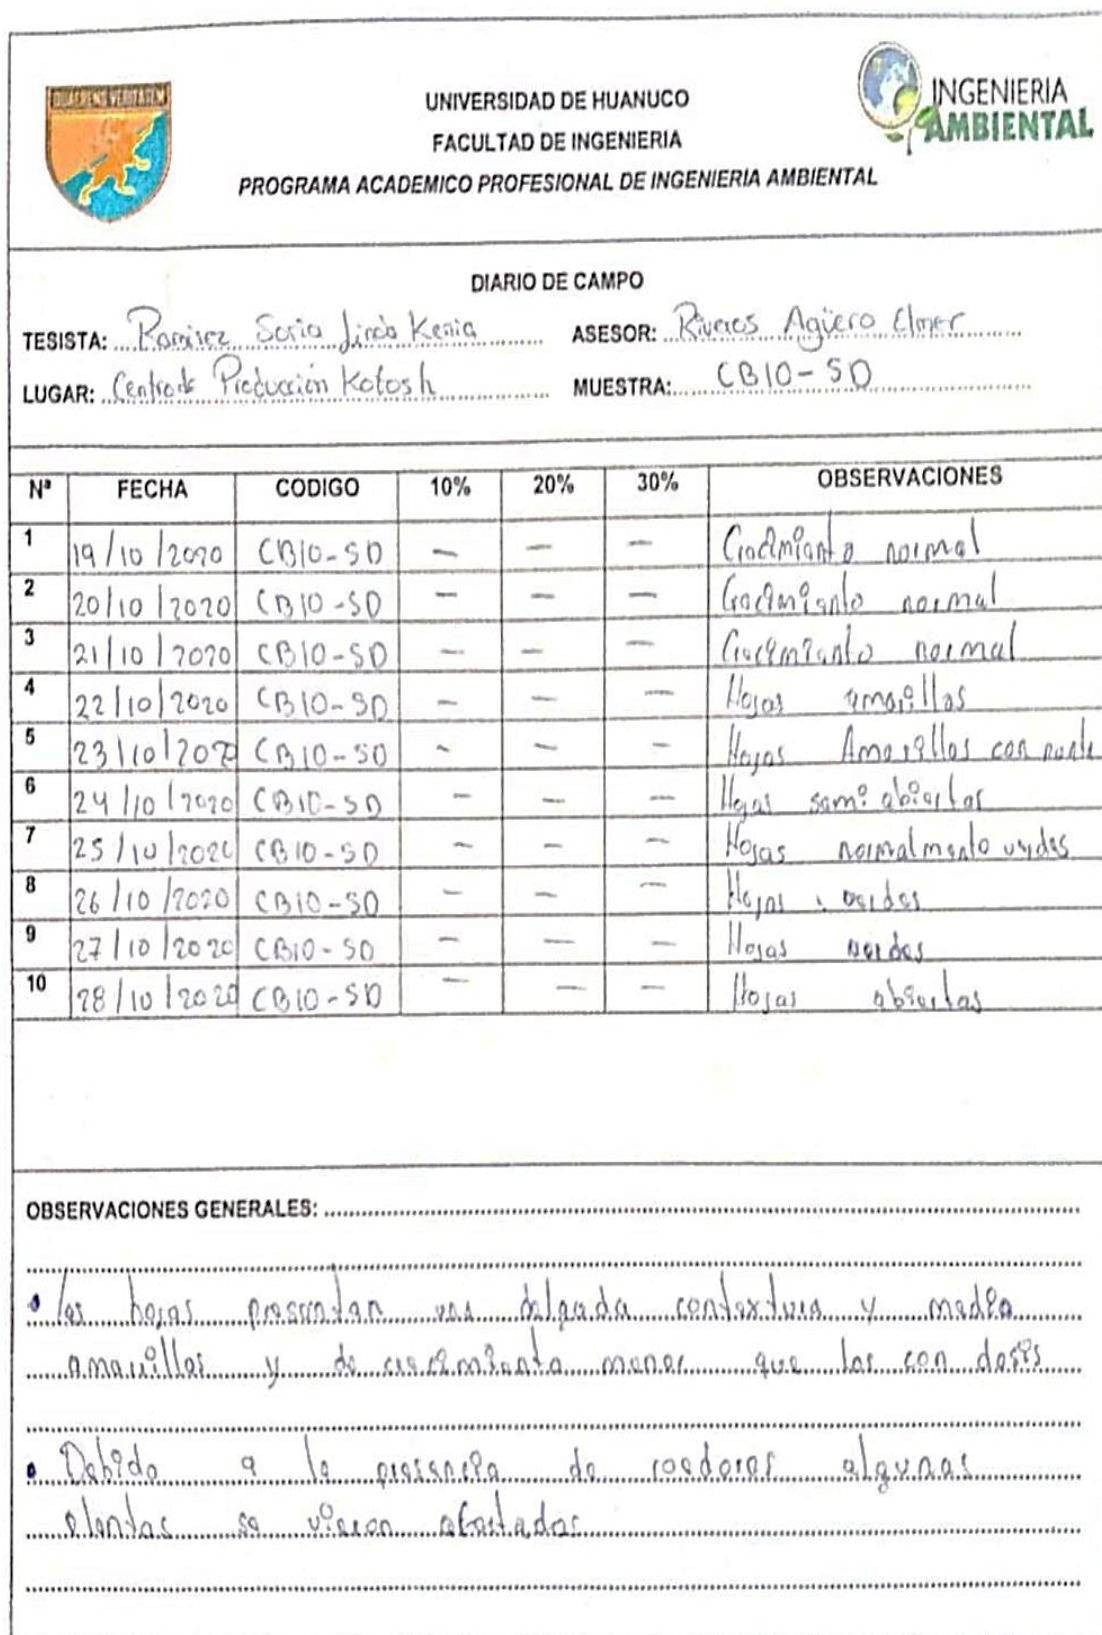 QUAERENS VERITATEM
UNIVERSIDAD DE HUANUCO
FACULTAD DE INGENIERIA
PROGRAMA ACADEMICO PROFESIONAL DE INGENIERIA AMBIENTAL
INGENIERIA
AMBIENTAL
DIARIO DE CAMPO
TESISTA: Ramirez Soria Linda Kenia ASESOR: Riveros Agüero Elmer
LUGAR: Centro de Producción Kotosh MUESTRA: CB10-SD
Nª FECHA CODIGO 10% 20% 30% OBSERVACIONES
1 19/10/2020 CB10-SD - - - Crecimiento normal
2 20/10/2020 CB10-SD - - - Crecimiento normal
3 21/10/2020 CB10-SD - - - Crecimiento normal
4 22/10/2020 CB10-SD - - - Hojas amarillas
5 23/10/2020 CB10-SD - - - Hojas Amarillas con
6 24/10/2020 CB10-SD - - - Hojas semi abiertas
7 25/10/2020 CB10-SD - - - Hojas normalmente verdes
8 26/10/2020 CB10-SD - - - Hojas verdes
9 27/10/2020 CB10-SD - - - Hojas verdes
10 28/10/2020 CB10-SD - - - Hojas abiertas
OBSERVACIONES GENERALES:
• las hojas presentan una delgada contextura y media
amarillas y de crecimiento menor que las con dosis
• Debido a la presencia de roedores algunas
plantas se vieron afectadas